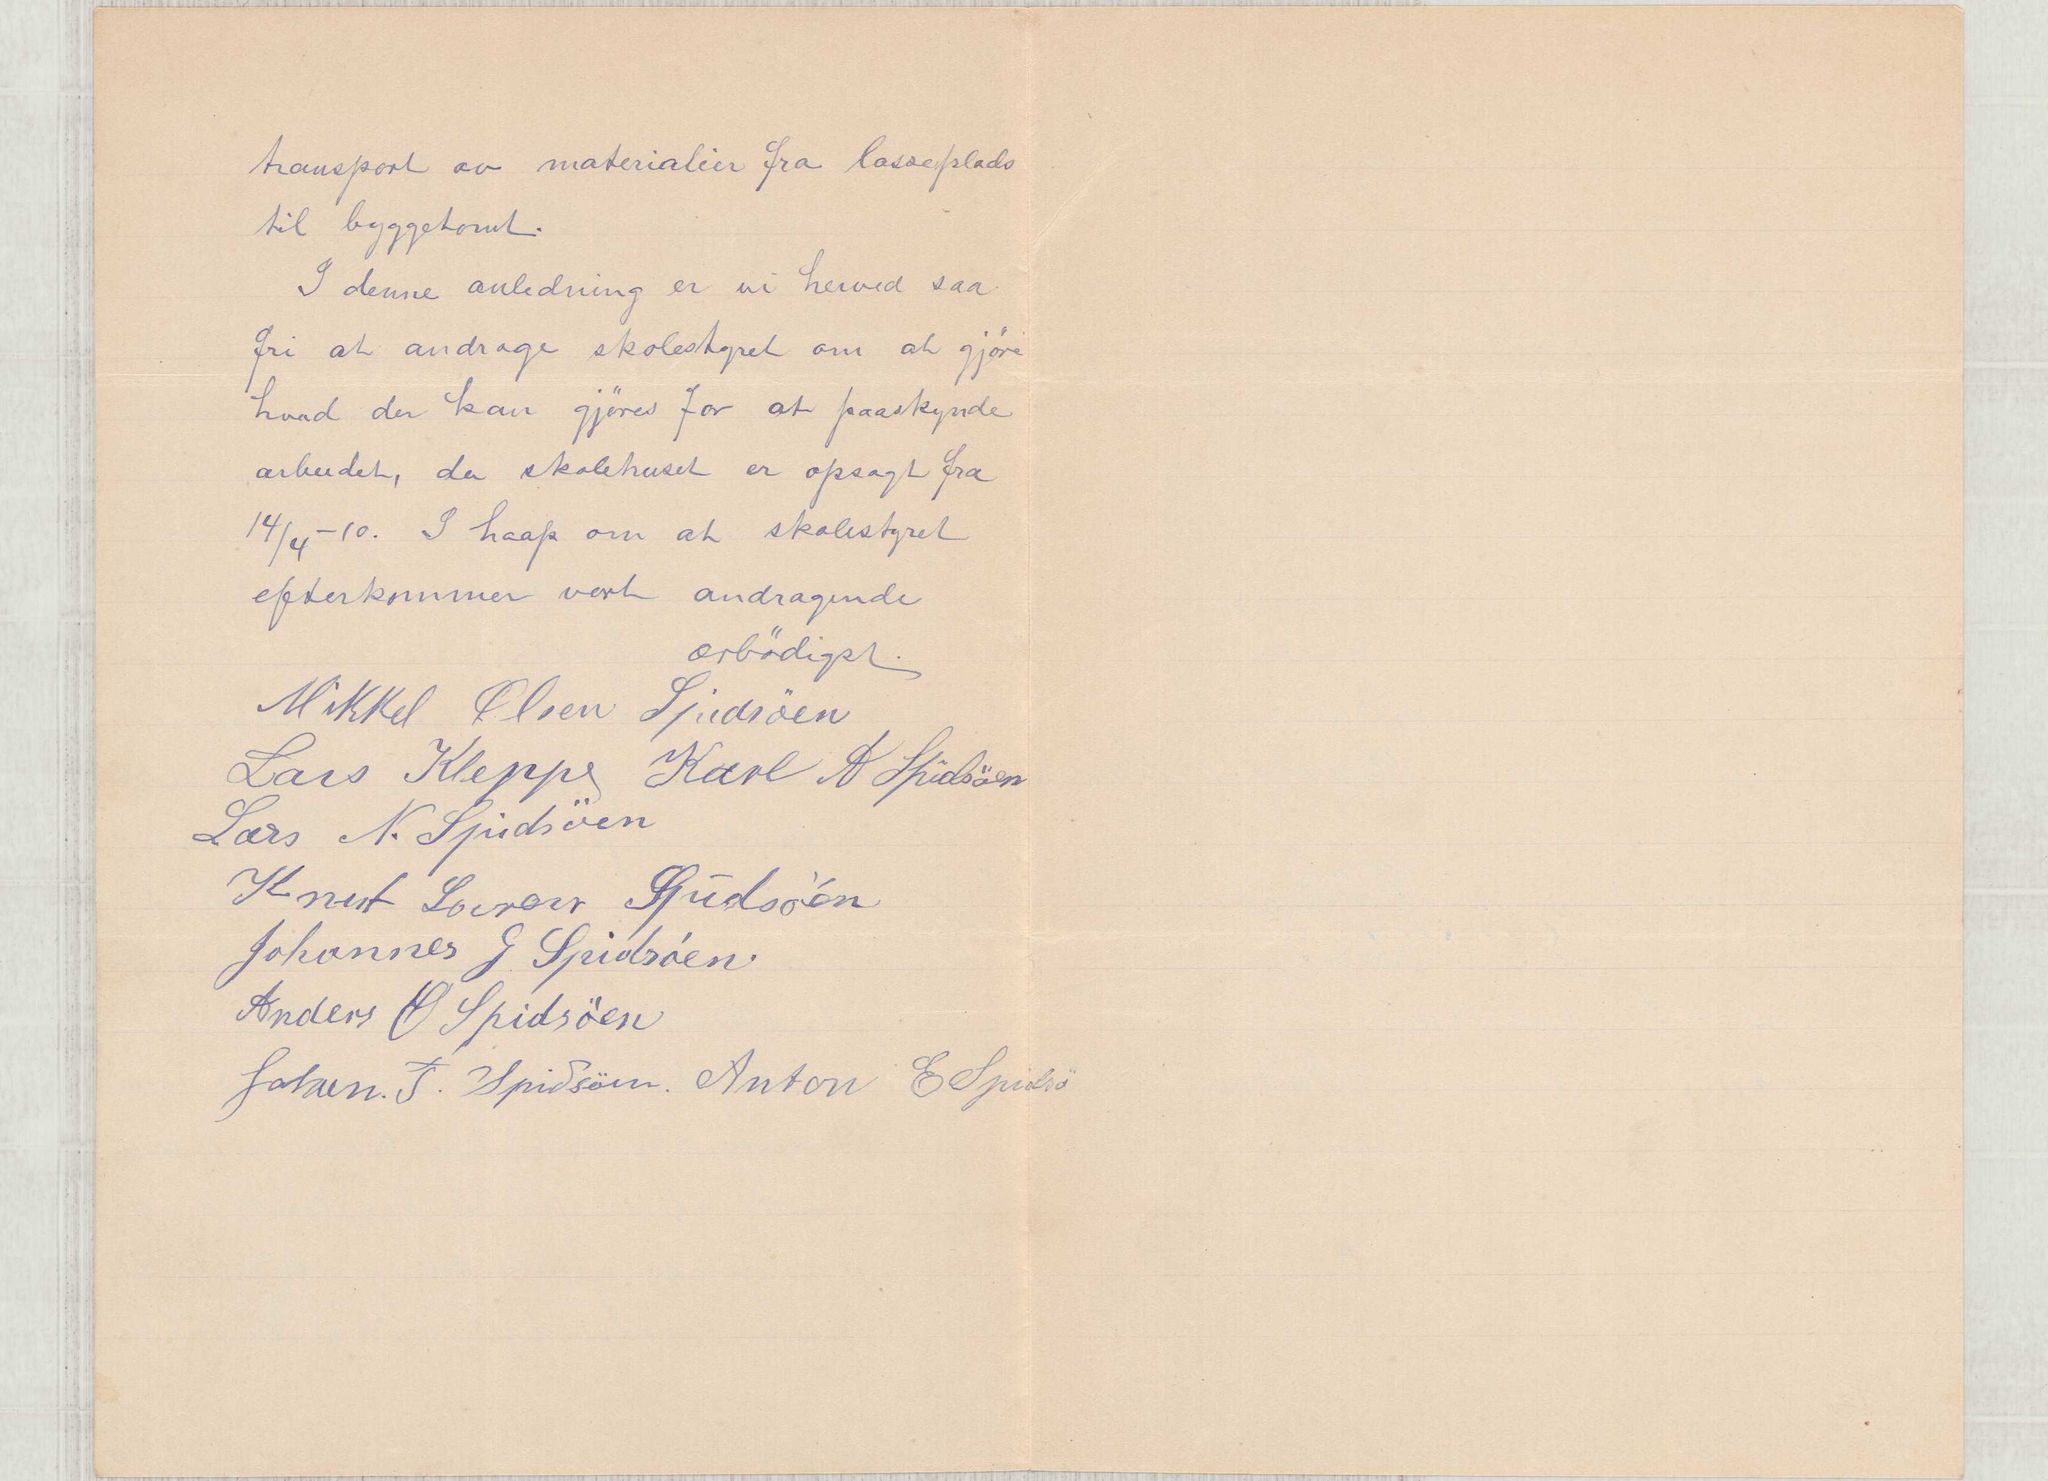 transport av materialier fra losseplads
til byggetomt.
I denne anledning er vi herved saa
fri at andrage skolestyret om at gjöre
hvad der kan gjöres for at paaskynde
arbeidet, da skolehuset er opsagt fra
14/4-10. I haap om at skolestyret
efterkommer vort andragende
ærbödigst.
Mikkel Olsen Spidsöen
Lars Kleppe Karl A Spidsöen
Lars N. Spidsöen
Knut Spidsöen
Johannes J Spidsöen.
Anders O Spidsöen
T. Spidsöen. Anton E Spidsö